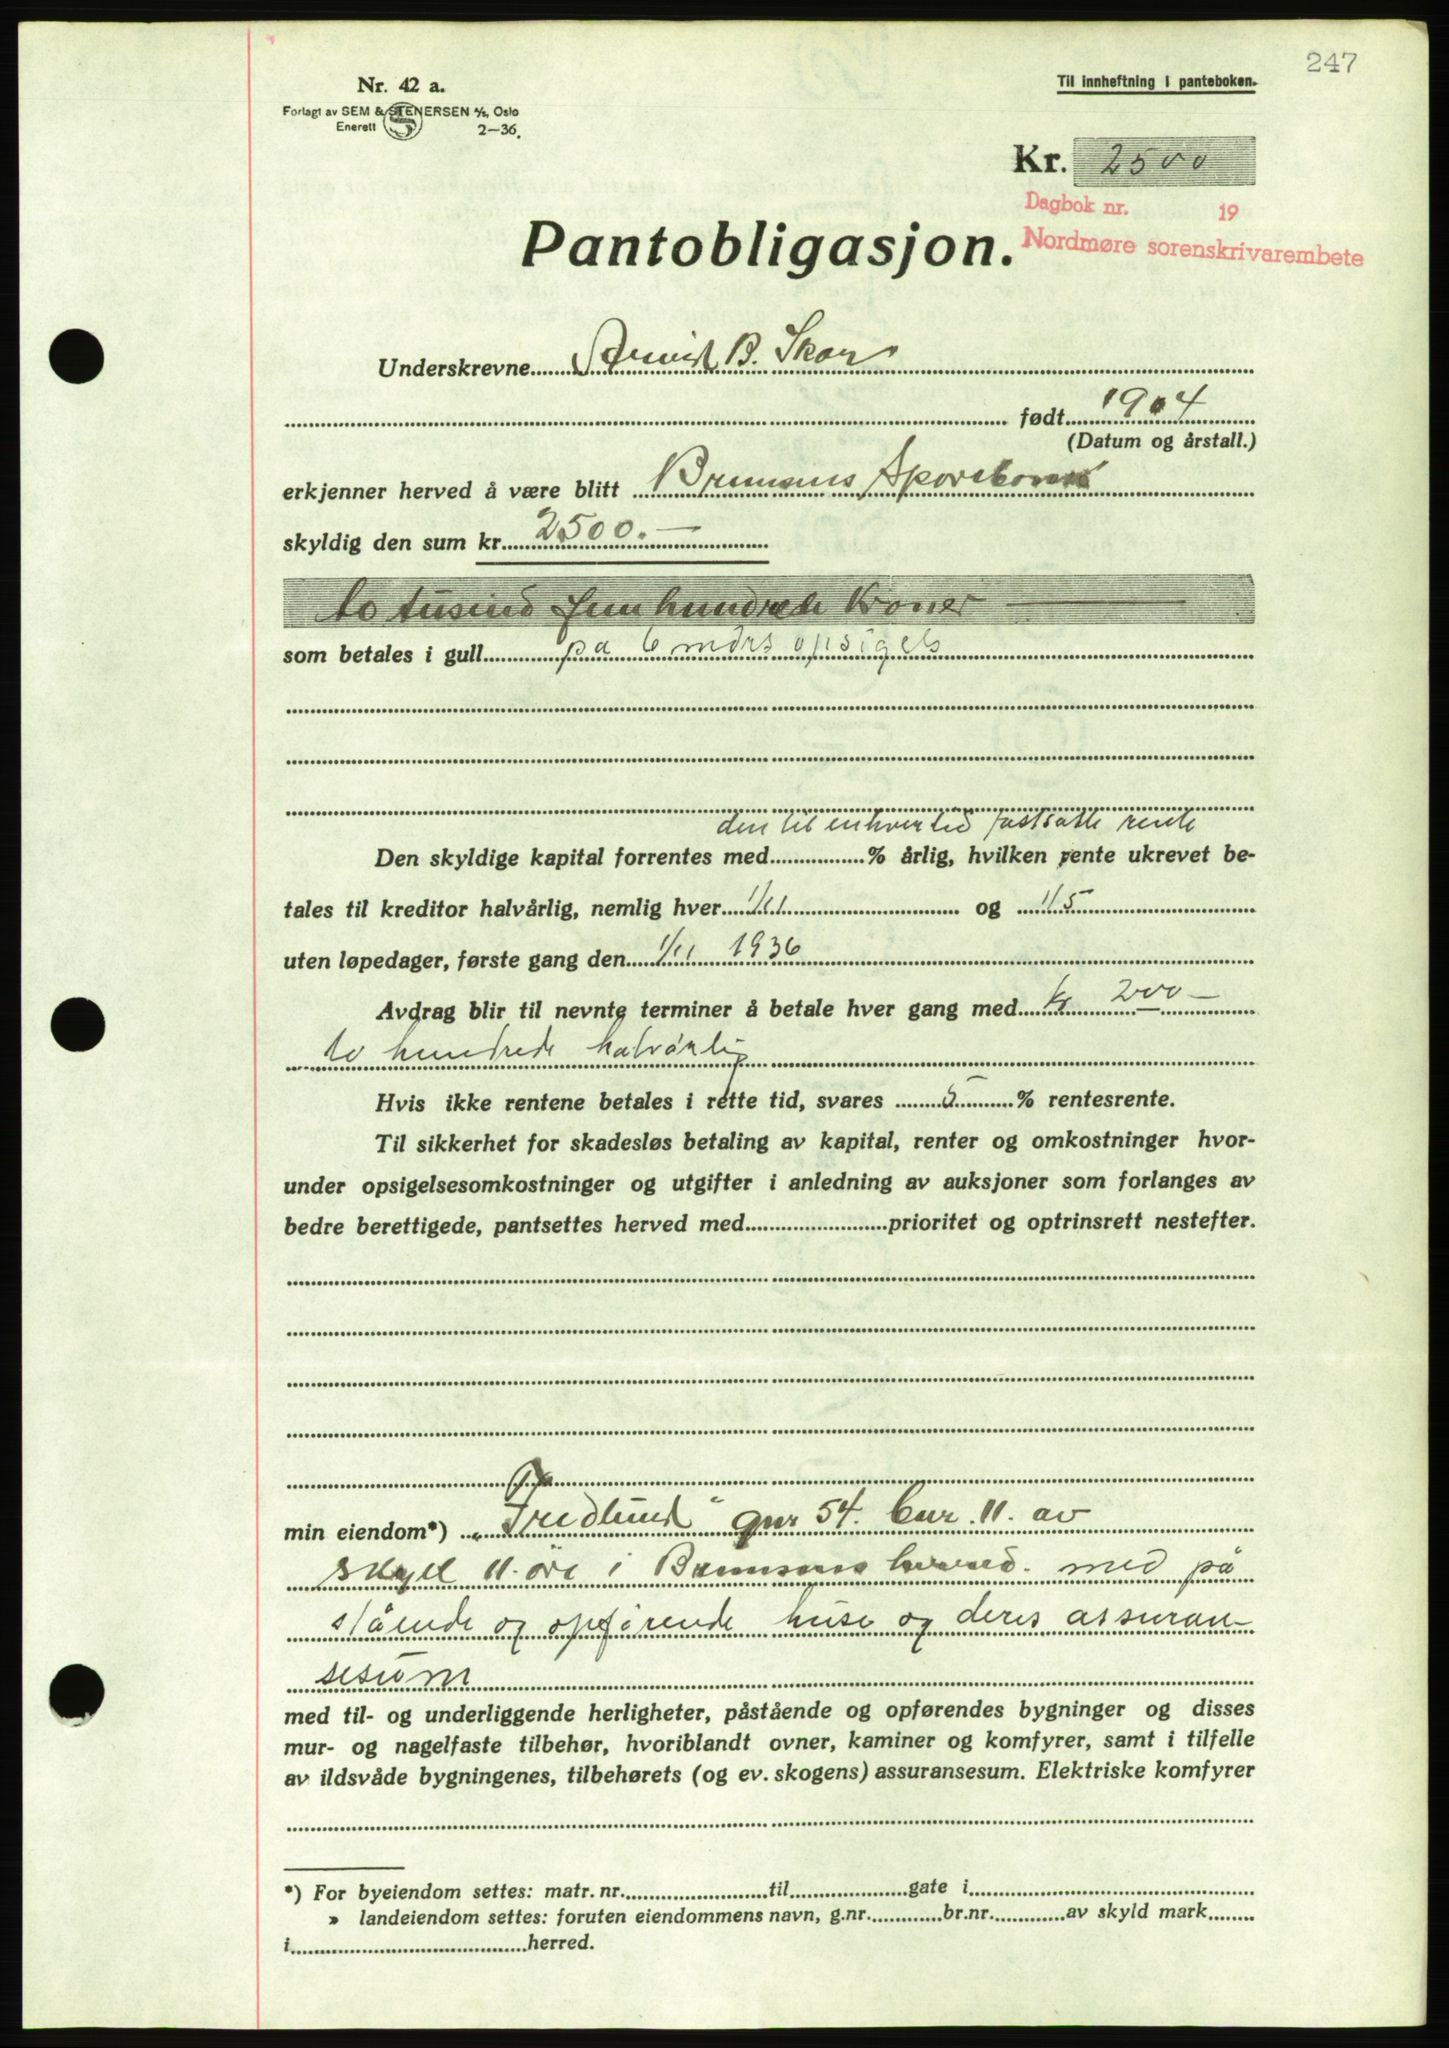 247
Nr. 42 a.
Til innheftning i panteboken.
Forlagt av SEM & STENERSEN A/S, Oslo
Enerett 2-36.
Kr. 2500
Dagbok nr. 19
Nordmøre sorenskrivarembete
Pantobligasjon.
Underskrevne Arvid B. Skar
født 1904
(Datum og årstall.)
erkjenner herved å være blitt Bremsnes Sparebank
skyldig den sum kr. 2500.—
to tusind fem hundrede Kroner —
som betales i gull på 6 mdrs opsigels
den til enhver tid fastsatte rente
Den skyldige kapital forrentes med % årlig, hvilken rente ukrevet be-
tales til kreditor halvårlig, nemlig hver 1/11 og 1/5
uten løpedager, første gang den 1/11 1936
Avdrag blir til nevnte terminer å betale hver gang med kr 200 —
to hundrede halvårlig
Hvis ikke rentene betales i rette tid, svares 5 % rentesrente.
Til sikkerhet for skadesløs betaling av kapital, renter og omkostninger hvor-
under opsigelsesomkostninger og utgifter i anledning av auksjoner som forlanges av
bedre berettigede, pantsettes herved med prioritet og optrinsrett nestefter.
min eiendom*) „Fredlund" gnr 54. bnr. 11. av
skyld 11. øre i Bremsnes herred. med på
stående og opførende huse og deres assuran-
sesum
med til- og underliggende herligheter, påstående og opførendes bygninger og disses
mur- og nagelfaste tilbehør, hvoriblandt ovner, kaminer og komfyrer, samt i tilfelle
av ildsvåde bygningenes, tilbehørets (og ev. skogens) assuransesum. Elektriske komfyrer
*) For byeiendom settes: matr. nr. til gate i
» landeiendom settes: foruten eiendommens navn, g.nr. br.nr. av skyld mark
i herred.